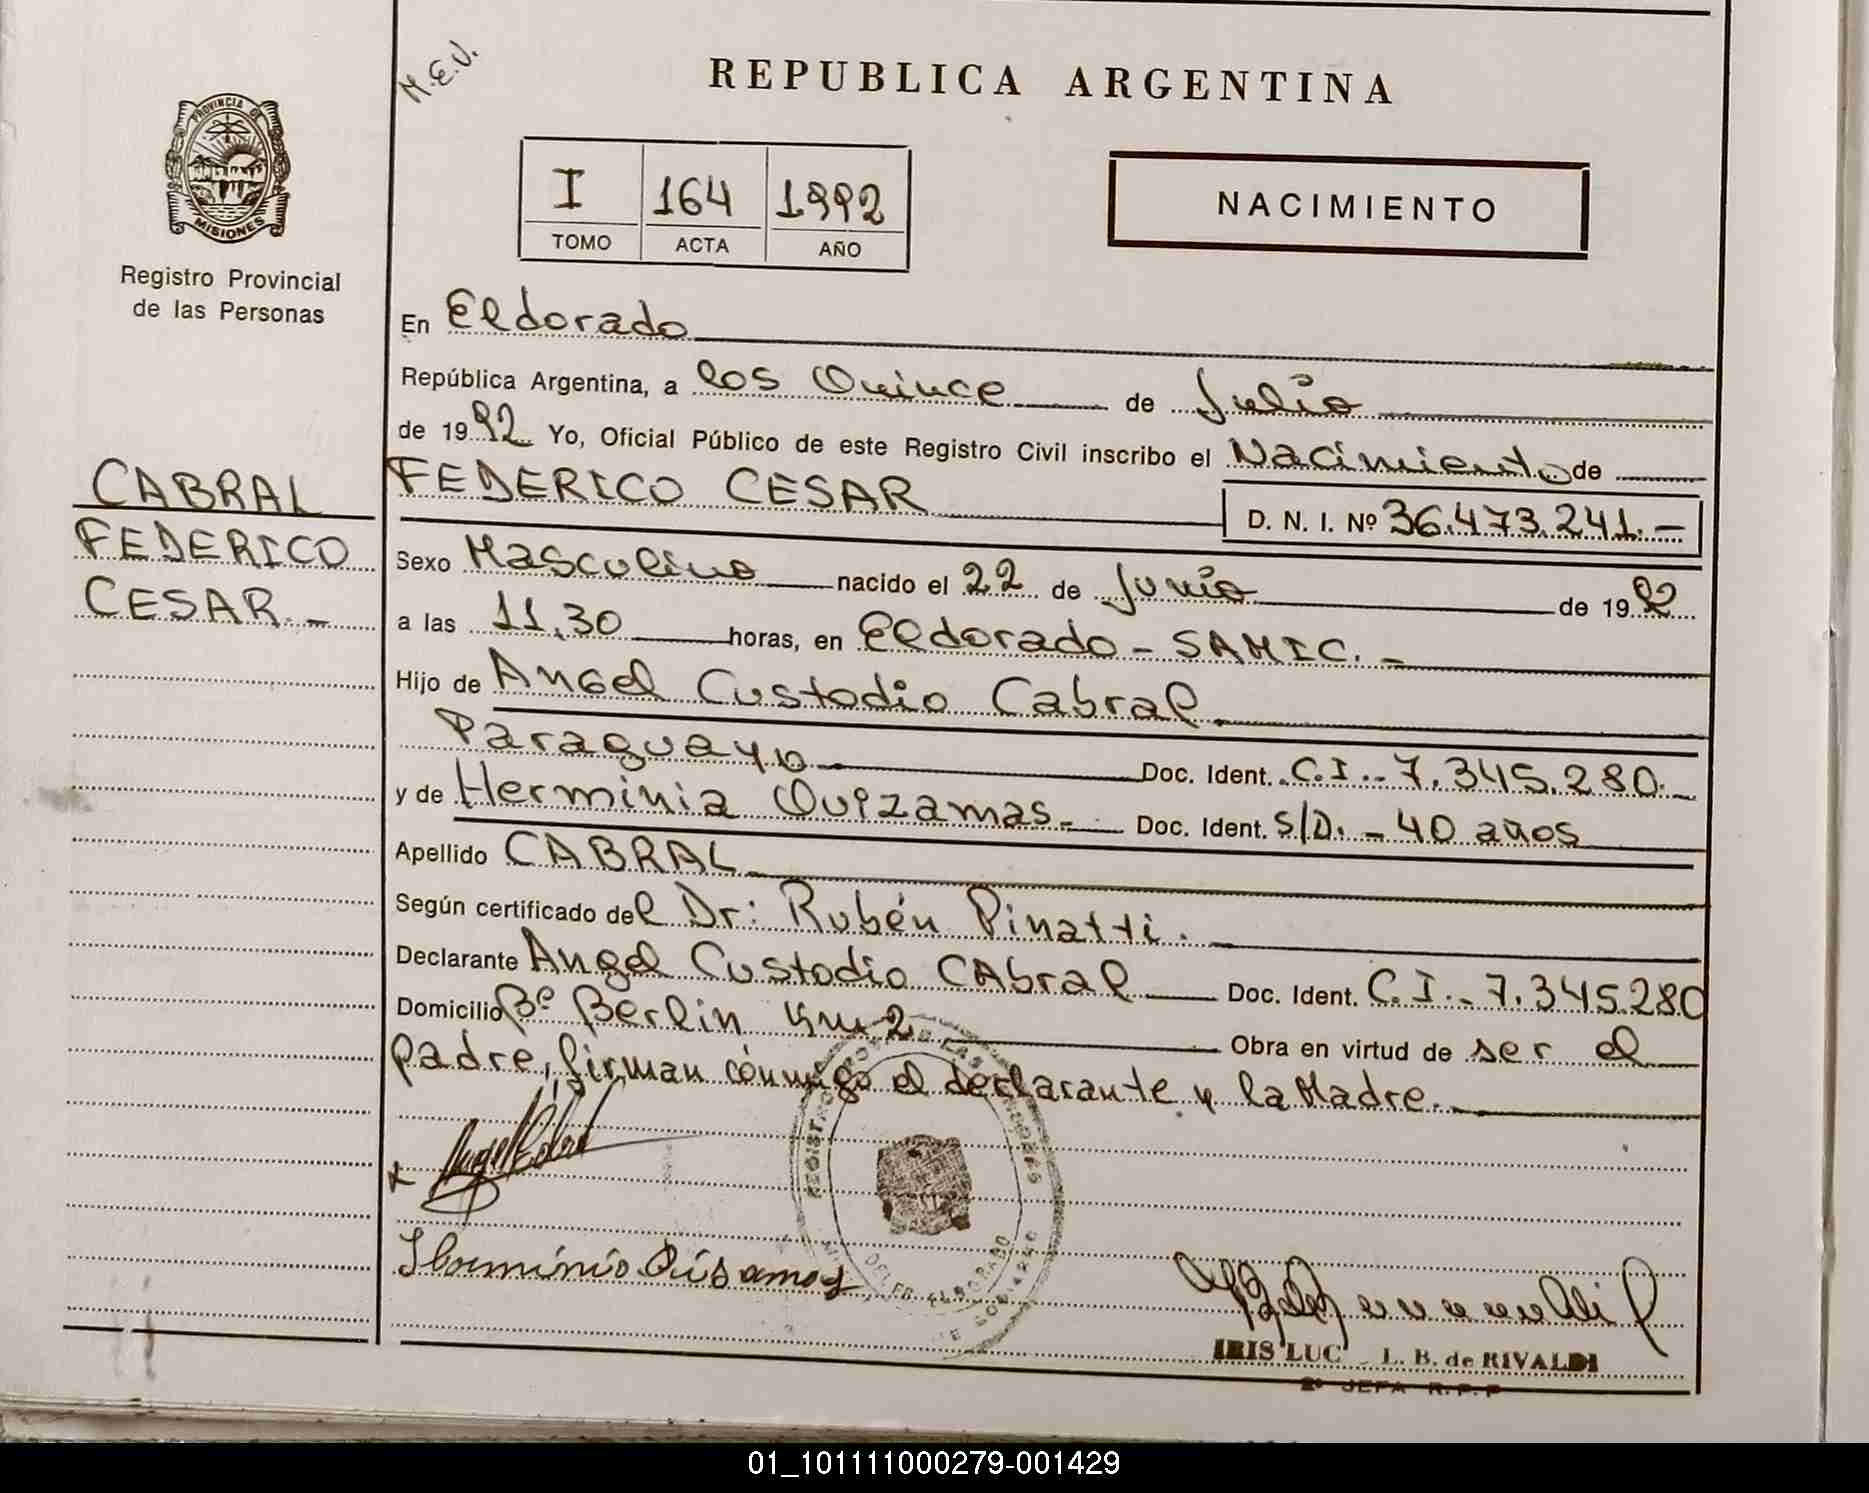 M.E.V.
REPUBLICA ARGENTINA
PROVINCIA DE
MISIONES
Registro Provincial
de las Personas
I 164 1992
TOMO ACTA AÑO
NACIMIENTO
En Eldorado
República Argentina, a los Quince de Julio
de 1992 Yo, Oficial Público de este Registro Civil inscribo el Nacimiento de
CABRAL
FEDERICO
CESAR.-
FEDERICO CESAR
D. N. I. Nº 36.473.241.-
Sexo Masculino nacido el 22 de Junio de 1992
a las 11,30 horas, en Eldorado - SAMIC.-
Hijo de Angel Custodio Cabral
Paraguayo Doc. Ident. C.I.- 7.345.280.-
y de Herminia Quizamas.- Doc. Ident. S/D. - 40 años
Apellido CABRAL
Según certificado del Dr: Rubén Pinatti.
Declarante Angel Custodio CAbral Doc. Ident. C.I.- 7.345.280
Domicilio Bº Berlin Km 2. Obra en virtud de ser el
padre, firman conmigo el declarante y la Madre.
IRIS LUC L. B. de RIVALDI
2º JEFA R.P.P
01_101111000279-001429